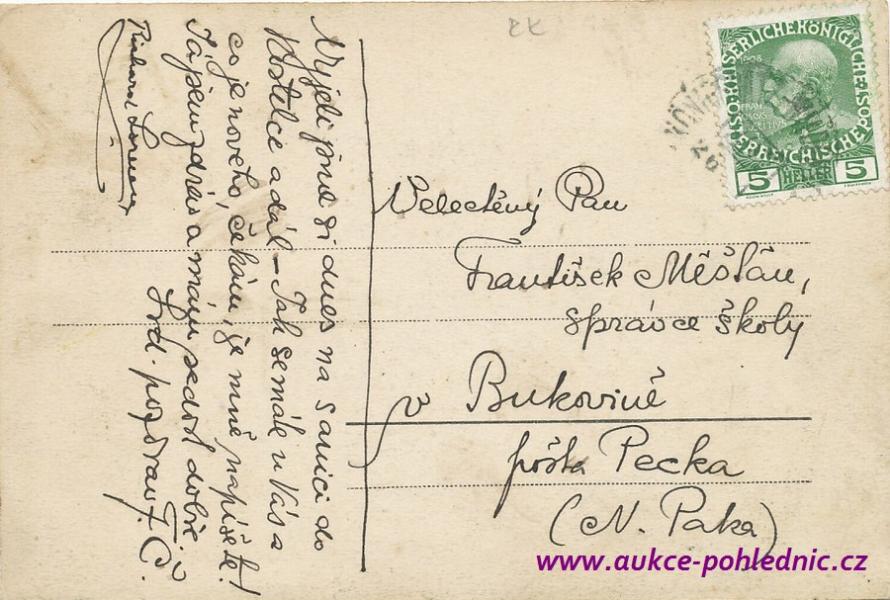 Vyjeli jsme si dnes na sanici do
Kostelce a dál – Jak se máte u Vás a
co je nového, čekám, že mně napíšete!
Já jsem zdráv a mám se dost dobře.
Srd. pozdrav F. Č.
Richard Lorenz
Velectěný Pan
František Měšťán,
správce školy
v Bukovině
pošta Pecka
(N. Paka)
KAISERLICHE KÖNIGLICHE
ÖSTERREICHISCHE
1908
5 HELLER 5
26
www.aukce-pohlednic.cz